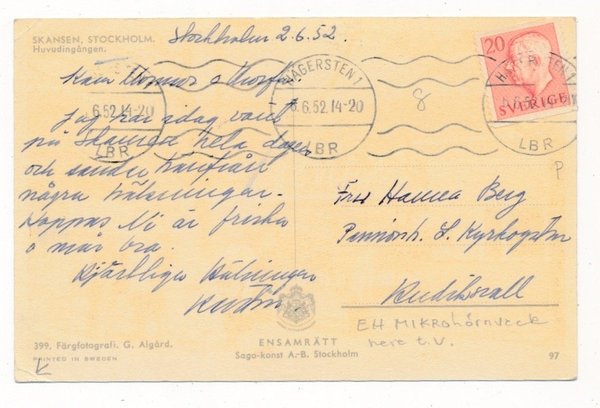 SKANSEN, STOCKHOLM.
Huvudingången.
Stockholm 2.6.52.
Kära
Jag har idag varit
på Skansen hela dagen
och sänder härifrån
några hälsningar.
Hoppas Ni är friska
o mår bra.
Hjärtliga Hälsningar
399. Färgfotografi. G. Algård.
PRINTED IN SWEDEN
ENSAMRÄTT
Sago-konst A.-B. Stockholm
HÄGERSTEN 1
6.52.14-20
LBR
6.52.14-20
LBR
LBR
20
SVERIGE
8
P
Fru Hanna Berg
S. Kyrkogatan
Hudiksvall
Ett MIKROhörnveck
nere t.v.
97